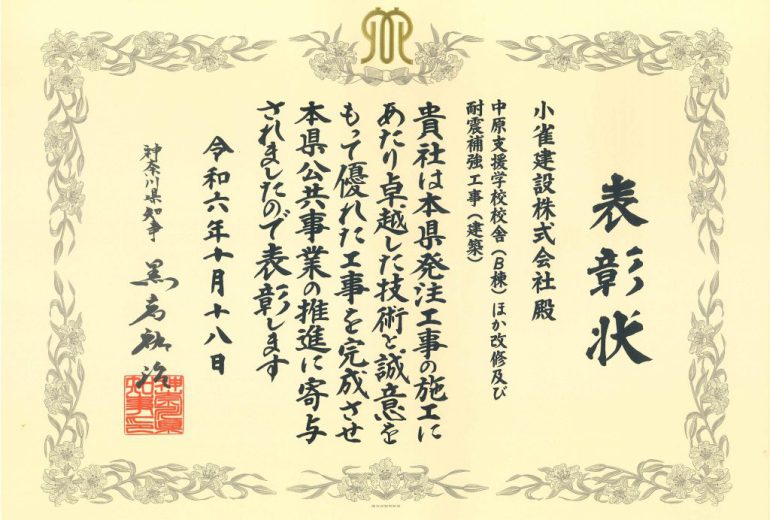 表彰状
小雀建設株式会社殿
中原支援学校校舎(B棟)ほか改修及び
耐震補強工事(建築)
貴社は本県発注工事の施工に
あたり卓越した技術と誠意を
もって優れた工事を完成させ
本県公共事業の推進に寄与
されましたので表彰します
令和六年十月十八日
神奈川県知事 黒岩祐治
神奈川県
知事之印